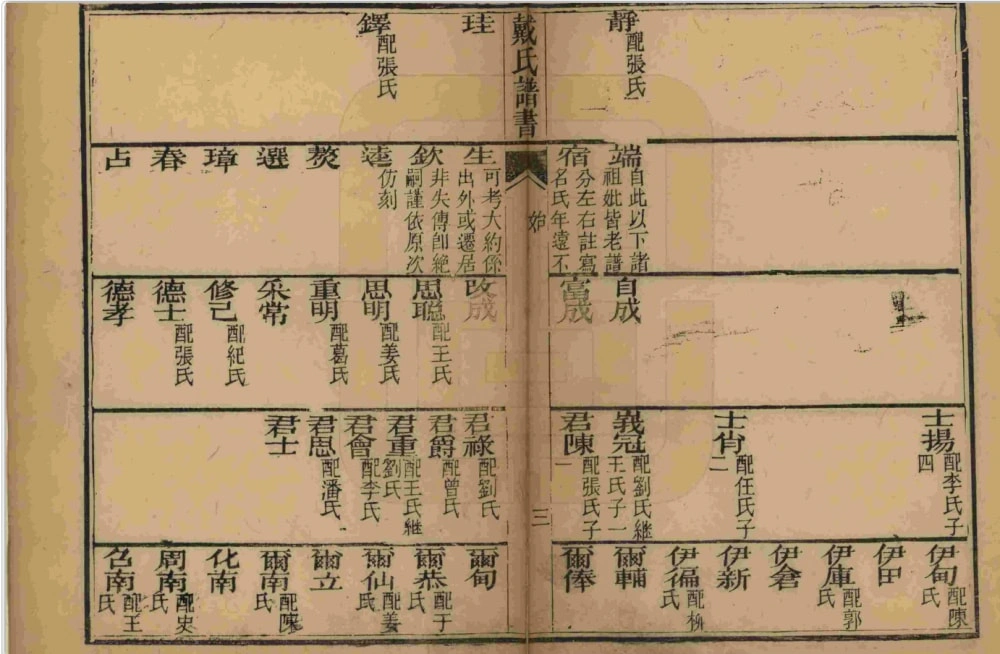 靜 配張氏
戴氏譜書
珪
鐸 配張氏
端 自此以下諸
祖妣皆老譜
分左右註寫
宿 名氏年遠不
始
生 可考大約係
出外或遷居
欽 非失傳卽絕
嗣謹依原次
逵 仿刻
選
璋
春
占
自成
富成
改成
思聰 配王氏
思明 配姜氏
重明 配葛氏
采常
修己 配紀氏
德士 配張氏
德孝
士揚 配李氏子
四
士肖 配任氏子
二
義冠 配劉氏繼
王氏子一
君陳 配張氏子
一
三
君祿 配劉氏
君爵 配曾氏
君重 配王氏繼
劉氏
君會 配李氏
君恩 配潘氏
君士
伊甸 配陳
氏
伊田
伊庫 配郭
氏
伊倉
伊新
伊福 配柳
氏
爾輔
爾俸
爾甸
爾恭 配于
氏
爾仙 配姜
氏
爾立
爾南 配陳
氏
化南
周南 配史
氏
色南 配王
氏